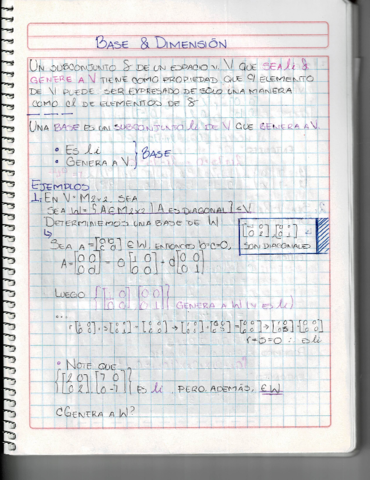 BASE & DIMENSIÓN
UN SUBCONJUNTO S DE UN ESPACIO V. V QUE SEA li &
GENERE A V TIENE COMO PROPIEDAD QUE ELEMENTO
DE V PUEDE SER EXPRESADO DE SOLO UNA MANERA
COMO cl DE ELEMENTOS DE S
UNA BASE ES UN SUBCONJUNTO li DE V QUE GENERA A V.
• ES li
• GENERA A V } BASE
EJEMPLOS
1: EN V= M2x2, SEA
SEA W= {A∈M2x2 | A ES DIAGONAL} ≤V
DETERMINEMOS UNA BASE DE W
SON DIAGONALES
SEA A= ∈W, ENTONCES b=c=0,
A= [a 0 0 d] = a[1 0 0 0] + d[0 0 0 1]
LUEGO {[1 0 0 0] [0 0 0 1]} GENERA A W (Y ES li)
...
r=s=0 ∴ es li
• NOTE QUE
{[2 0 0 2] [7 0 0 -7]} ES li PERO ADEMÁS, ∈W
¿GENERA A W?